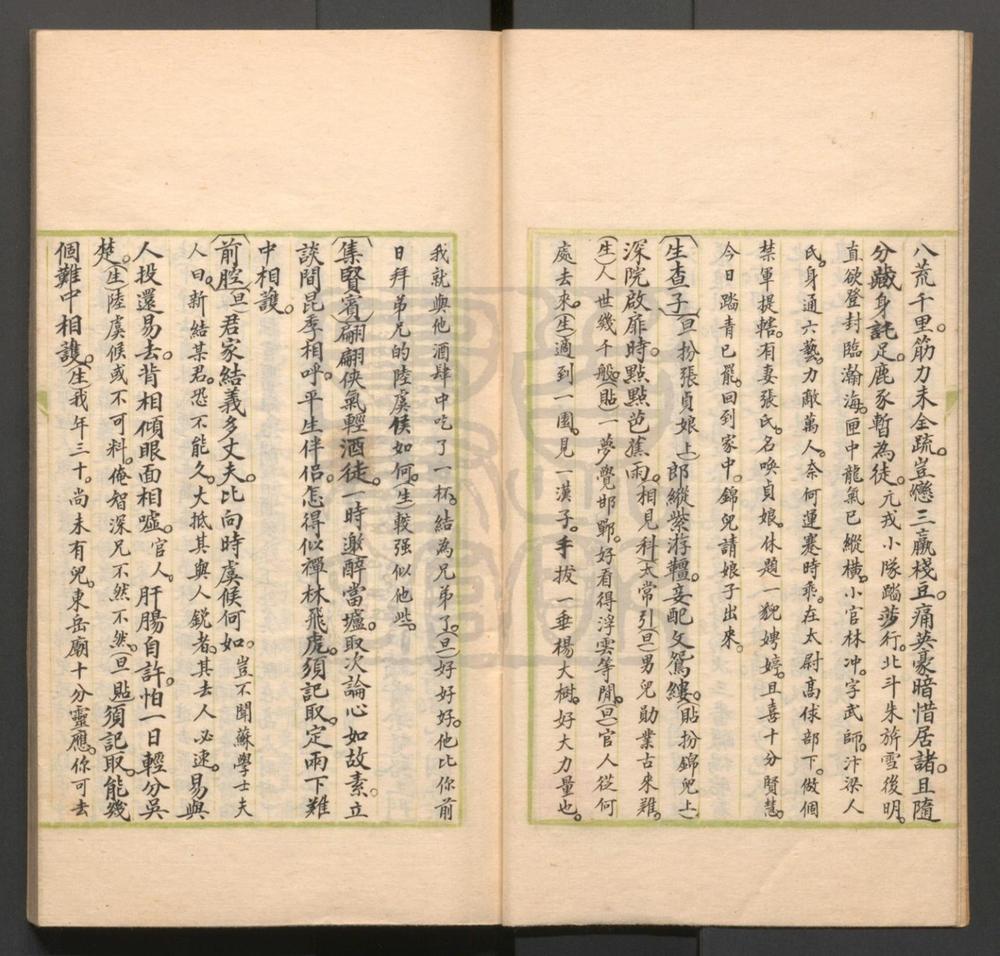 八荒千里。筋力未全疏。豈戀三驘棧豆。痛英豪暗惜居諸。且隨
分藏身託足。鹿豕暫為徒。元戎小隊踏莎行。北斗朱旂雪後明。
直欲登封臨瀚海。匣中龍氣已縱橫。小官林冲。字武師。汴梁人
氏。身通六藝。力敵萬人。奈何運蹇時乖。在太尉高俅部下。做個
禁軍提轄。有妻張氏。名喚貞娘。休題一貌娉婷。且喜十分賢慧。
今日踏青已罷。回到家中。錦兒請娘子出來。
生查子(旦扮張貞娘上)郎縱紫游韁。妾配文鴛縷。(貼扮錦兒上)
深院啟扉時。點點芭蕉雨。(相見科)(大常引)(旦)男兒勛業古來難。
(生)人世幾千般。(貼)一夢覺邯鄲。好看得浮雲等閒。(旦)官人從何
處去來。(生)適到一園。見一漢子。手拔一垂楊大樹。好大力量也。
我就與他酒肆中吃了一杯。結為兄弟了。(旦)好好好。他比你前
日拜弟兄的陸虞候如何。(生)較强似他些。
集賢賓(翩翩俠氣輕酒徒。一時邀醉當壚。取次論心如故素。立
談間昆季相呼。平生伴侶。怎得似禪林飛虎。須記取。定兩下難
中相護。
前腔(旦)君家結義多丈夫。比向時虞候何如。豈不聞蘇學士夫
人曰。新結某君。恐不能久。大抵其與人銳者。其去人必速。易與
人投還易去。背相傾眼面相噓。官人。肝腸自許。怕一日輕分吳
楚。(生)陸虞候或不可料。俺智深兄不然不然。(旦貼)須記取。能幾
個難中相護。(生)我年三十。尚未有兒。東岳廟十分靈應。你可去